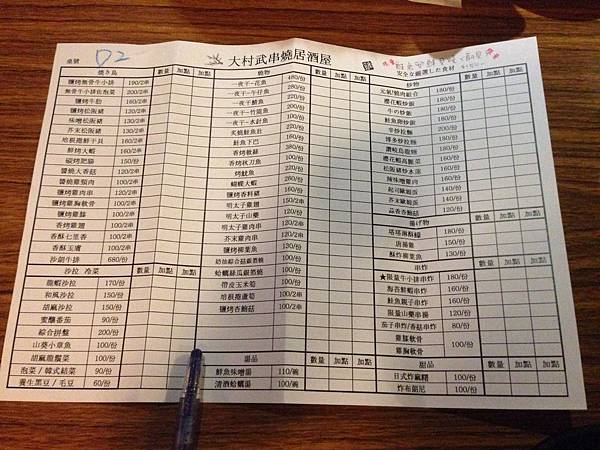 桌號 D2
大村武串燒居酒屋
安全な厳選した食材
燒き鳥 數量 加點 加點
鹽烤無骨牛小排 190/2串
無骨牛小排佐泡菜 200/2串
鹽烤牛肋 180/2串
鹽烤松阪豬 120/2串
味噌松阪豬 130/2串
芥末松阪豬 130/2串
培根捲鮮干貝 160/2串
鹽烤大蝦 160/2串
碳烤肥腸 150/份
醬燒大香菇 120/2串
醬燒雞頸肉 100/2串
鹽烤雞肉串 120/2串
鹽烤雞胸軟骨 100/2串
鹽烤雞腿 100/2串
香烤雞翅 100/2串
香酥七里香 100/2串
香酥玉盧 100/2串
沙朗牛排 680/份
沙拉 冷菜 數量 加點 加點
龍蝦沙拉 170/份
和風沙拉 150/份
胡麻沙拉 150/份
蜜釀番茄 90/份
綜合拼盤 200/份
山葵小章魚 100/份
胡麻龍鬚菜 100/份
泡菜/韓式結菜 90/份
養生黑豆/毛豆 60/份
燒物 數量 加點 加點
一夜干-花魚 480/份
一夜干-午仔魚 280/份
一夜干鯖魚 200/份
一夜干-竹筴魚 200/份
一夜干-水針魚 100/份
炙燒鮭魚肚 220/份
鮭魚下巴 180/份
香烤軟絲 380/份
香烤秋刀魚 100/份
烤魷魚 260/份
蝴蝶大蝦 280/份
香料烤豬 160/份
明太子雞翅 150/2串
明太子山藥 120/份
明太子雞肉串 140/2串
芥末雞肉串 130/2串
鹽烤柳葉魚 100/份
奶油綜合菇銀箔燒 100/份
蛤蠣絲瓜銀箔燒 100/份
帶皮玉米筍 100/份
培根捲蘆筍 100/2串
鹽烤杏鮑菇 100/2串
湯品 數量 加點 加點
鮮魚味噌湯 110/碗
清酒蛤蠣湯 100/碗
炒物 數量 加點 加點
元氣燒肉組合 180/份
櫻花蝦炒飯 120/份
牛の炒飯 120/份
鮭魚卵炒飯 180/份
辛炒拉麵
博多炒拉麵
讚岐烏龍麵
櫻花蝦高麗菜
松阪豬炒水蓮
辣味噌雞肉
起司歐姆蛋 140/份
芥末歐姆蛋 140/份
蒜香杏鮑菇 120/份
揚げ物 數量 加點 加點
塔塔南酥蠔 180/份
唐揚雞 150/份
酥炸柳葉魚 130/份
串炸 數量 加點 加點
★限量牛小排串炸 180/份
海苔鮮蝦串炸 160/份
鮭魚親子串炸 160/份
限量山藥串揚 120/份
茄子串炸/香菇串炸 80/份
雞腿軟骨
雞胸軟骨 100/份
甜品 數量 加點 加點
日式炸麻糬 100/份
炸布朗尼 100/份